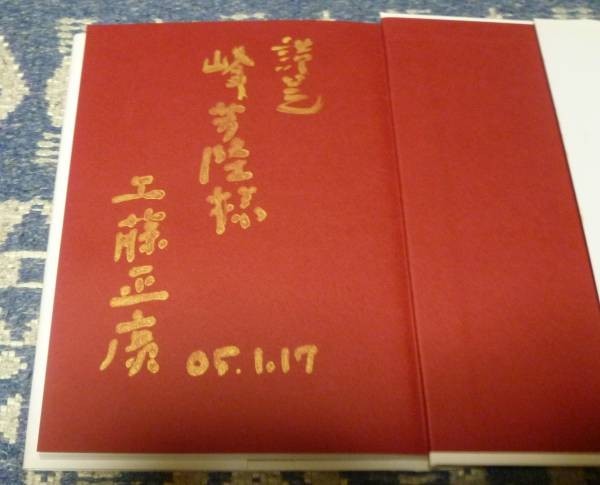 謹呈
峰芳隆様
工藤正廣
05.1.17